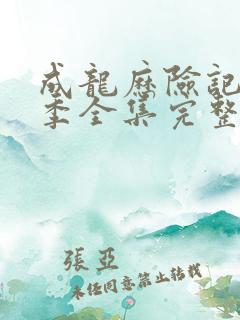 成龍歷險記
季全集完整
張亞
未经同意禁止转载